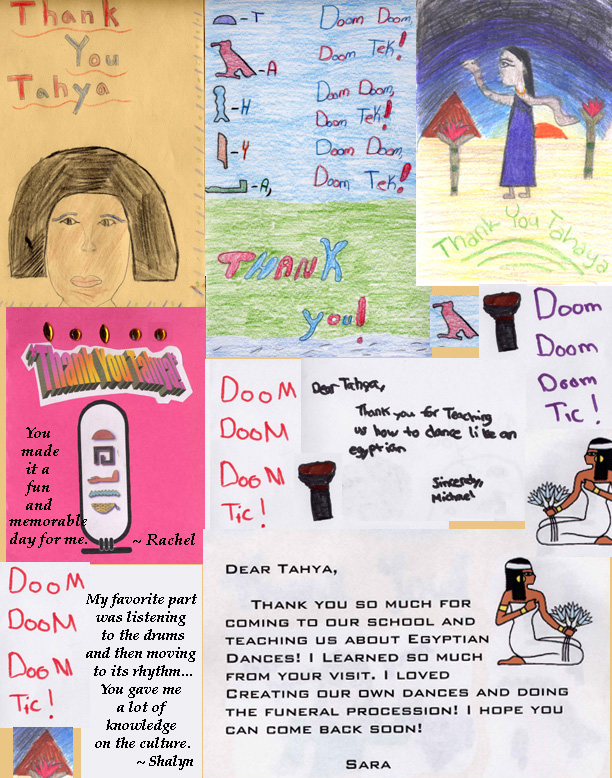 Thank
You
Tahya
-T
-A
-H
-Y
-A,
Doom Doom,
Doom Tek!
Doom Doom,
Doom Tek!
Doom Doom,
Doom Tek!
THANK
you!
Thank You Tahaya
Thank You
You
made
it a
fun
and
memorable
day for me.
~ Rachel
DooM
DooM
DooM
Tic!
Dear Tahya,
Thank you for Teaching
us how to dance like an
egyptian
Sincerely,
Michael
Doom
Doom
Doom
Tic!
DooM
DooM
DooM
Tic!
My favorite part
was listening
to the drums
and then moving
to its rhythm...
You gave me
a lot of
knowledge
on the culture.
~ Shalyn
DEAR TAHYA,
THANK YOU SO MUCH FOR
COMING TO OUR SCHOOL AND
TEACHING US ABOUT EGYPTIAN
DANCES! I LEARNED SO MUCH
FROM YOUR VISIT. I LOVED
CREATING OUR OWN DANCES AND DOING
THE FUNERAL PROCESSION! I HOPE YOU
CAN COME BACK SOON!
SARA